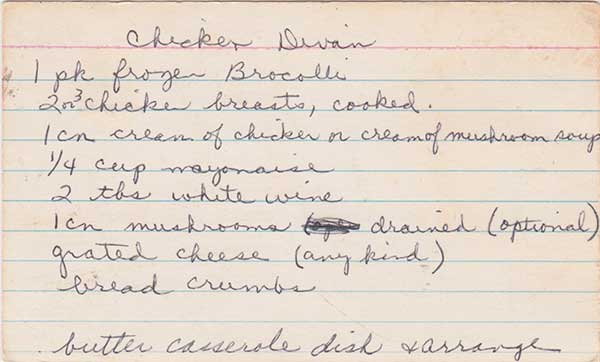 Chicken Divan
1 pk frozen Brocolli
2 or 3 chicken breasts, cooked.
1 cn cream of chicken or cream of mushroom soup
1/4 cup mayonaise
2 tbs white wine
1 cn mushrooms drained (optional)
grated cheese (any kind)
bread crumbs
butter casserole dish & arrange